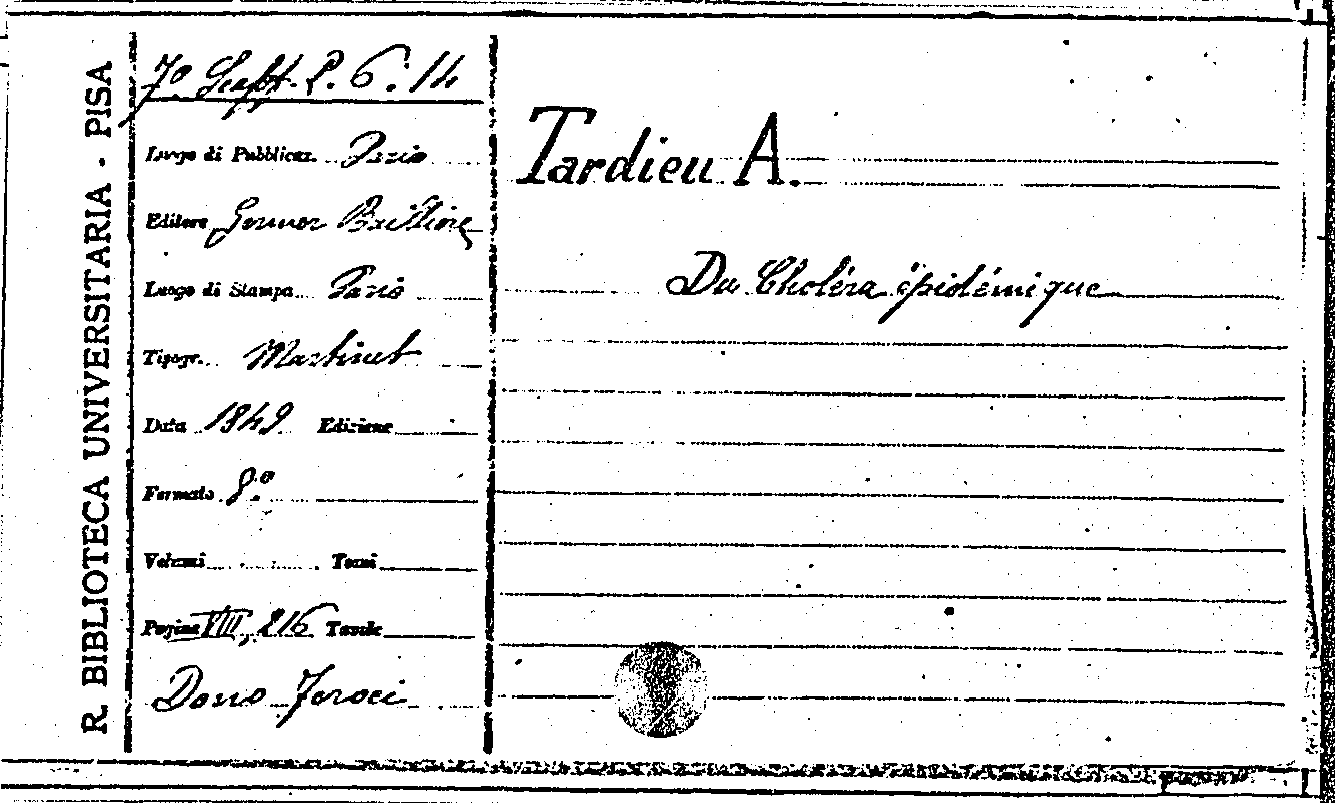 R. BIBLIOTECA UNIVERSITARIA - PISA
7º Scaff. 2. 6. 14
Luogo di Pubblicaz. Paris
Editore Germer Baillière
Luogo di Stampa Paris
Tipogr. Martinet
Data 1849 Edizione
Formato 8.º
Volumi Tomi
Pagine VIII, 216 Tavole
Dono Feroci
Tardieu A.
Du Choléra épidémique